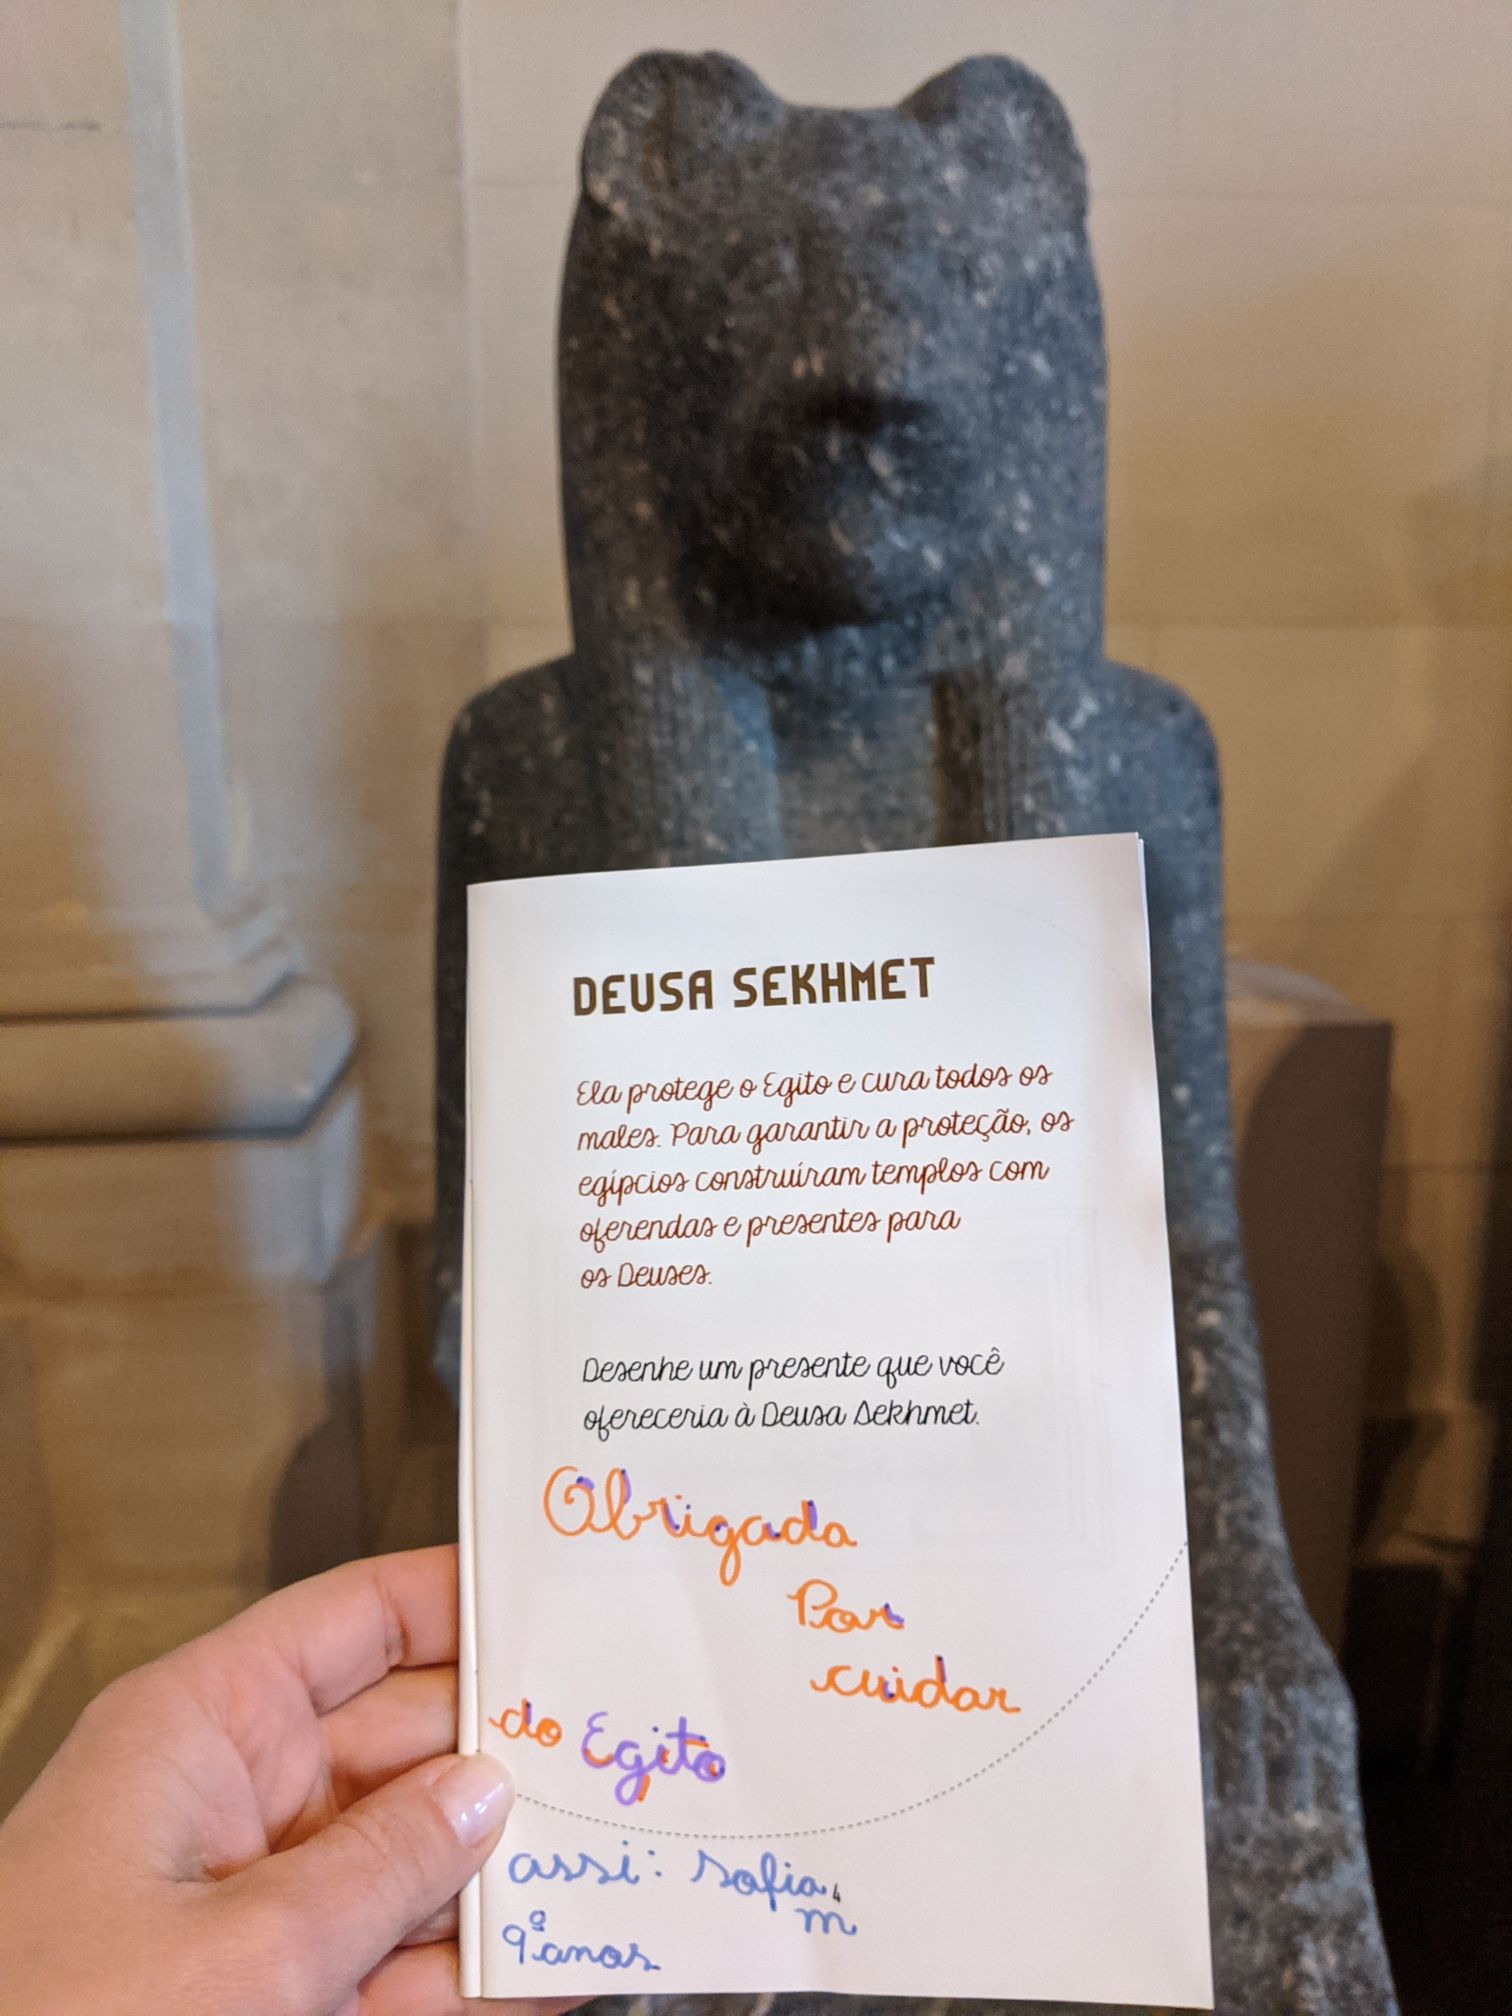 DEUSA SEKHMET
Ela protege o Egito e cura todos os
males. Para garantir a proteção, os
egípcios construíram templos com
oferendas e presentes para
os Deuses.
Desenhe um presente que você
ofereceria à Deusa Sekhmet.
Obrigada
Por
cuidar
do Egito
assi: Sofia
m
9º anos
4